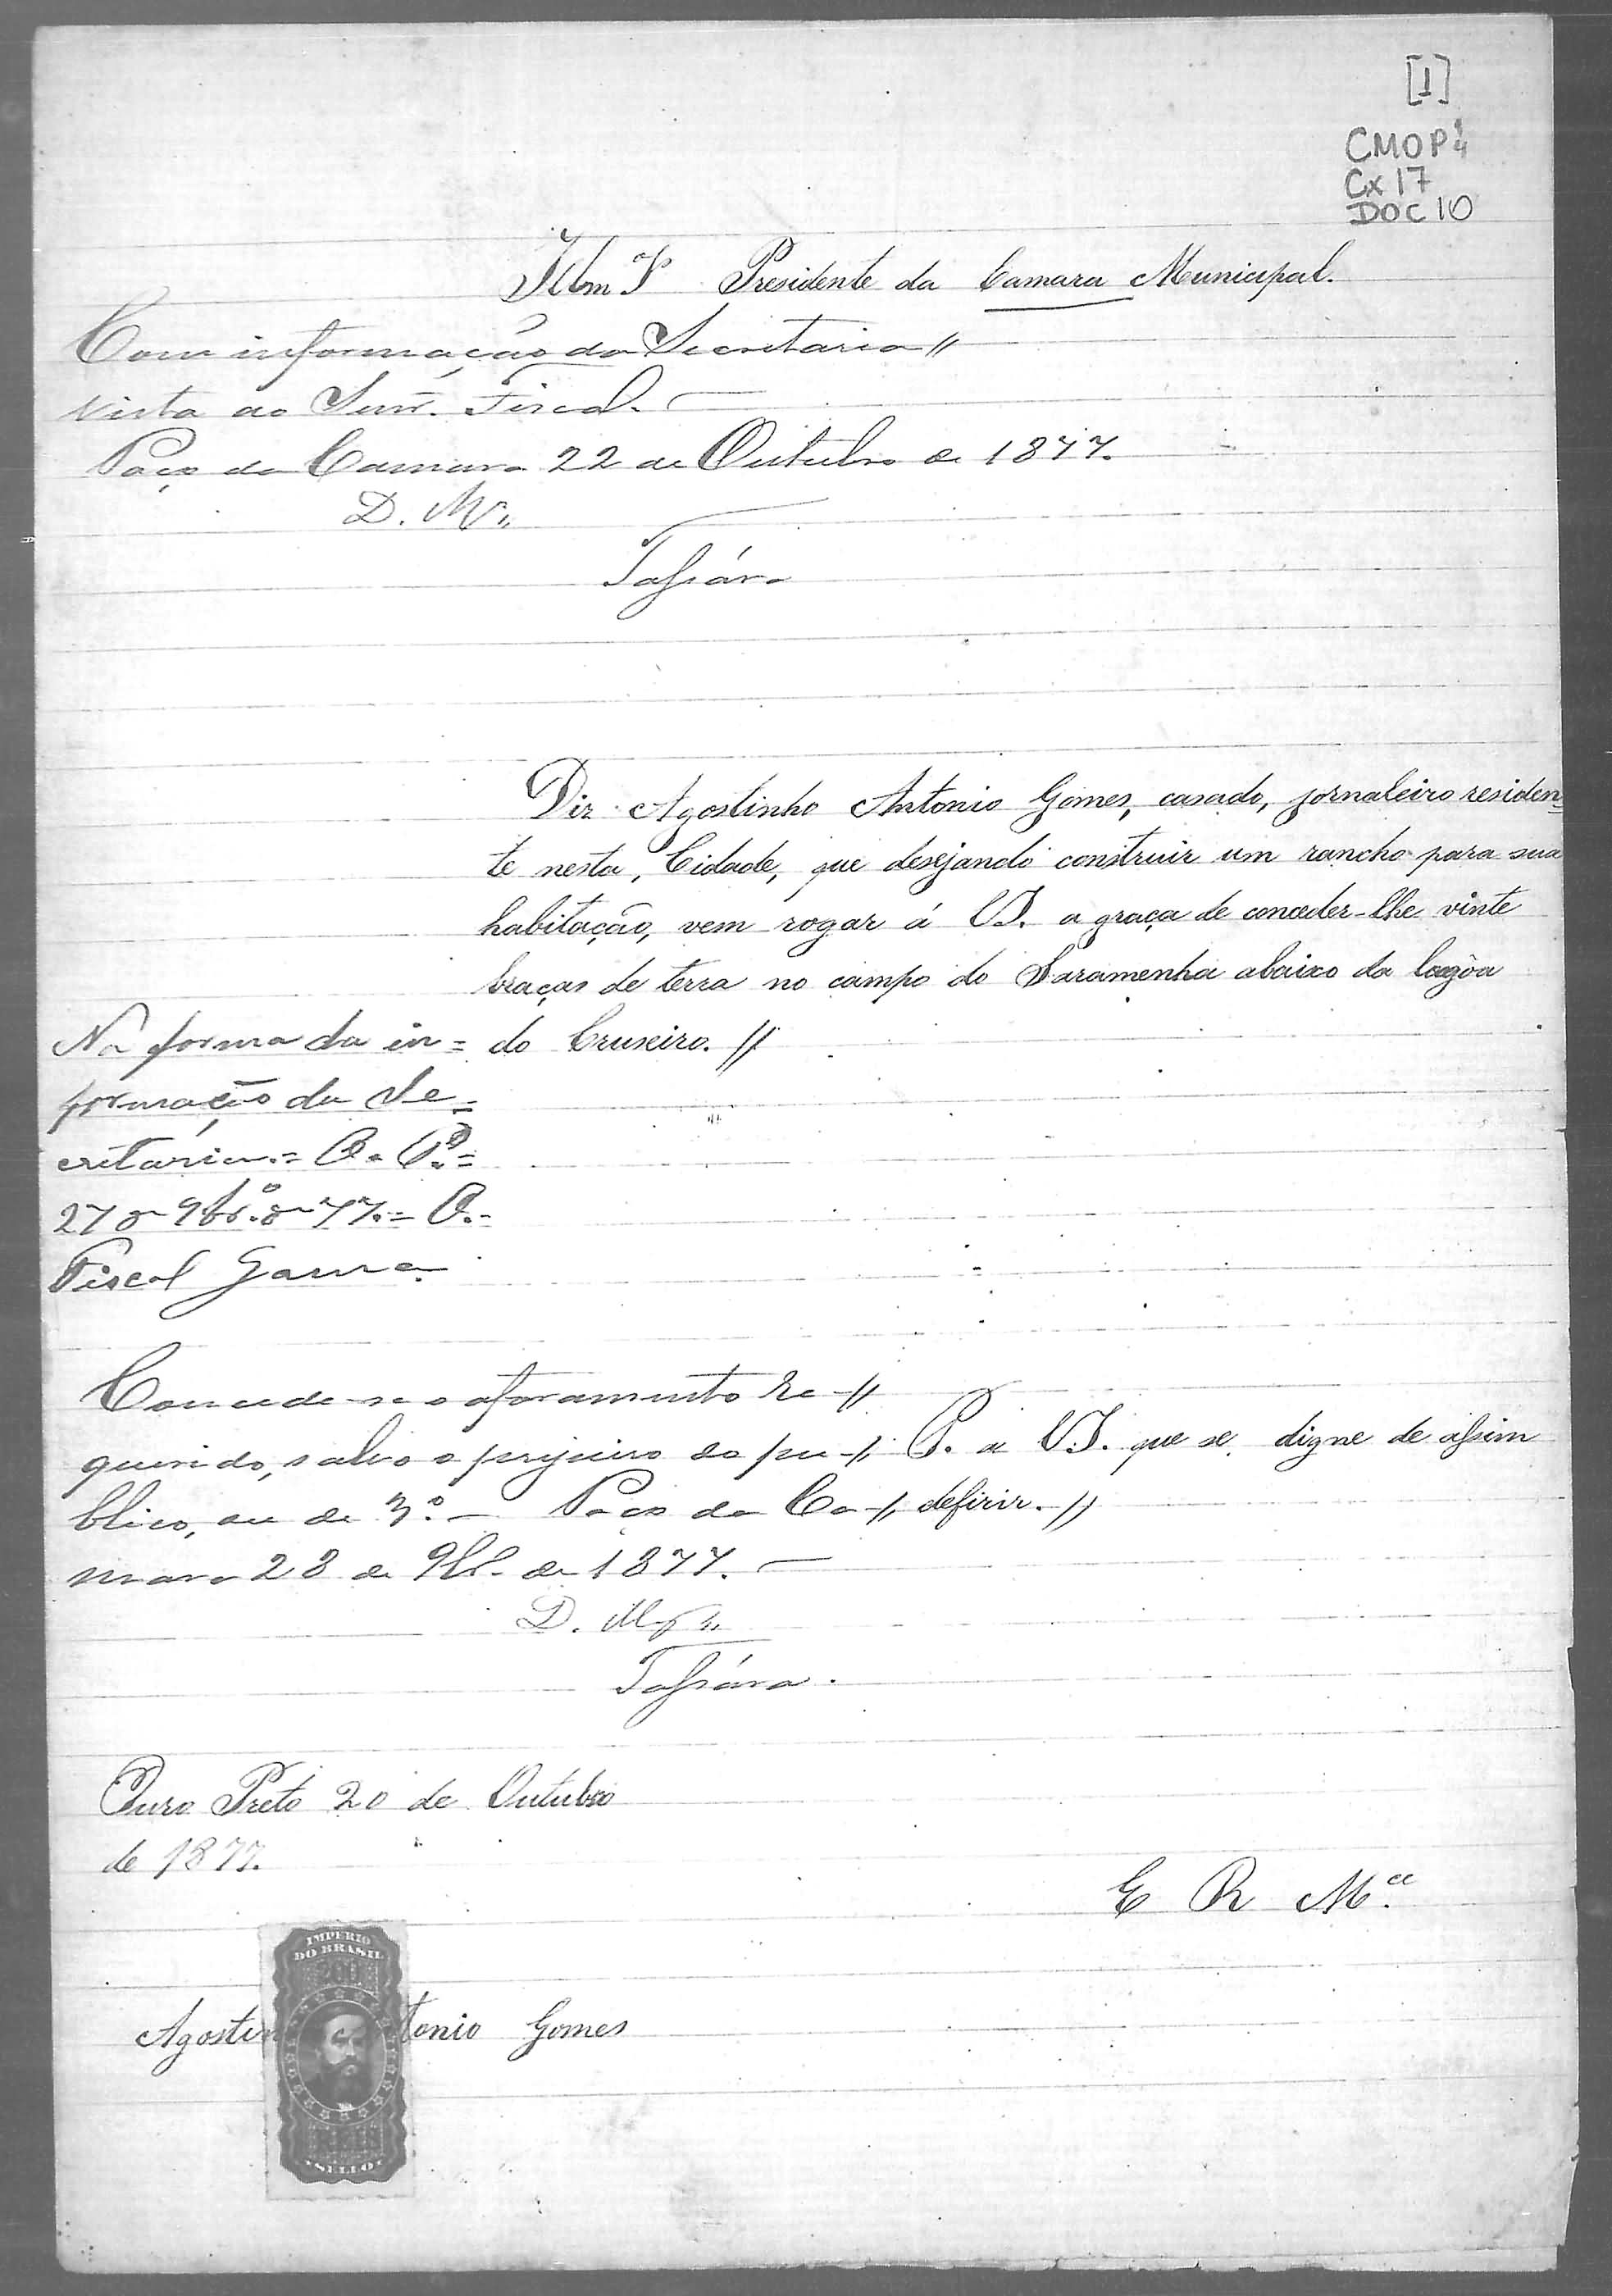 [1]
CMOP
Cx 17
DOC 10
Illm Sr Presidente da Camara Municipal.
Com informação da Secretaria //
vista ao Senr. Fiscal.
Paço da Camara 22 de Outubro de 1877.
D. M.
Tassára
Diz Agostinho Antonio Gomes, casado, jornaleiro residen=
te nesta, Cidade, que desejando construir um rancho para sua
habitação, vem rogar á VS. a graça de conceder-lhe vinte
braças de terra no campo do Saramenha abaixo da lagôa
do Cruseiro. //
Na forma da in=
formação da Se=
cretaria.= O. P.=
27 de 9br.o de 77.= O.
Fiscal Gama
Concede-se o aforamento re-//
querido, salvo o prejuiso do pu-//
blico, ou de 3.o – Paço da Ca-//
mara 28 de 9br.o de 1877.
D. M.
Tassára.
P. a V.S. que se digne de assim
defirir. //
Ouro Preto 20 de Outubro
de 1877.
E R M.ce
IMPERIO
DO BRASIL
200
SELLO
Agostin tonio Gomes